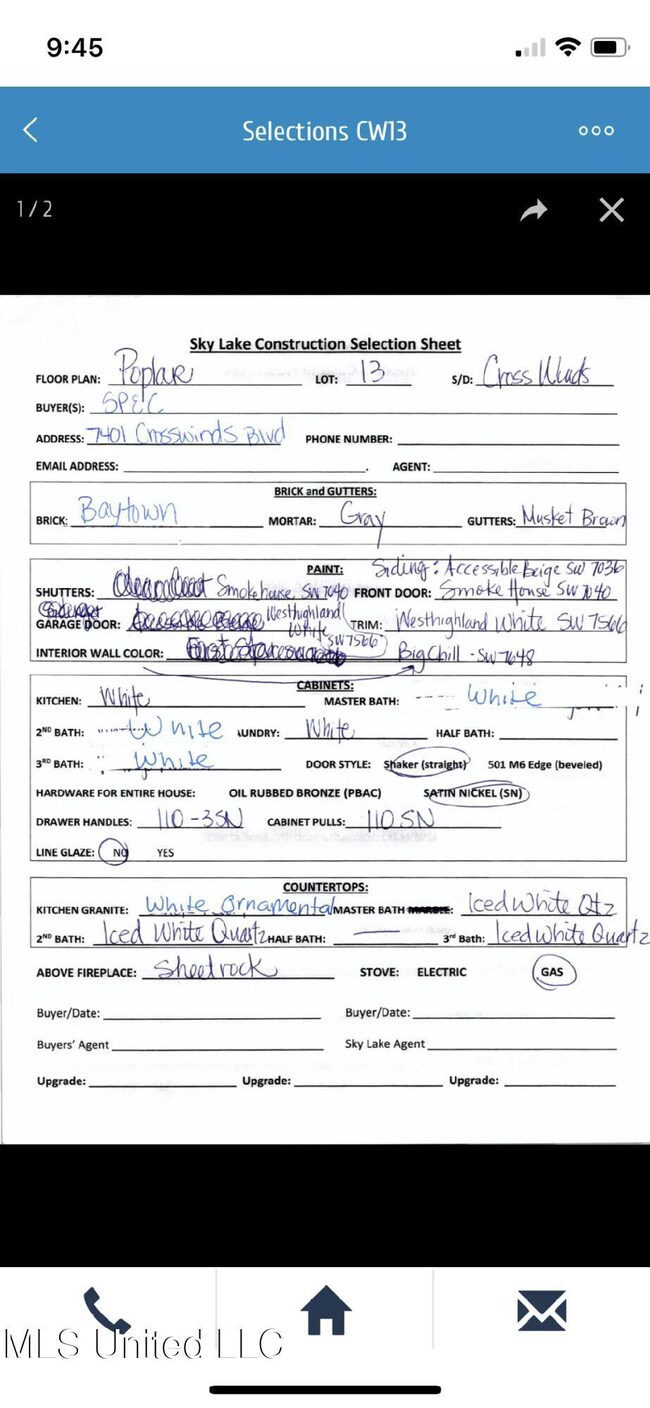 9:45
Selections CW13
1/2
Sky Lake Construction Selection Sheet
FLOOR PLAN: Poplar LOT: 13 S/D: Cross Winds
BUYER(S): SPEC
ADDRESS: 7401 Crosswinds Blvd PHONE NUMBER:
EMAIL ADDRESS: . AGENT:
BRICK and GUTTERS:
BRICK: Baytown MORTAR: Gray GUTTERS: Musket Brown
PAINT: Siding: Accessible Beige SW 7036
SHUTTERS: Smokehouse SW 7040 FRONT DOOR: Smoke House SW 7040
GARAGE DOOR: Westhighland White SW 7566 TRIM: Westhighland White SW 7566
INTERIOR WALL COLOR: Big Chill - SW 7648
CABINETS:
KITCHEN: White MASTER BATH: White
2ND BATH: White UNDRY: White HALF BATH:
3RD BATH: White DOOR STYLE: Shaker (straight) 501 M6 Edge (beveled)
HARDWARE FOR ENTIRE HOUSE: OIL RUBBED BRONZE (PBAC) SATIN NICKEL (SN)
DRAWER HANDLES: 110-35N CABINET PULLS: 110SN
LINE GLAZE: NO YES
COUNTERTOPS:
KITCHEN GRANITE: White Ornamental MASTER BATH MARBLE: Iced White Qtz
2ND BATH: Iced White Quartz HALF BATH: — 3rd Bath: Iced White Quartz
ABOVE FIREPLACE: Sheetrock STOVE: ELECTRIC GAS
Buyer/Date: Buyer/Date:
Buyers' Agent Sky Lake Agent
Upgrade: Upgrade: Upgrade:
MLS United LLC